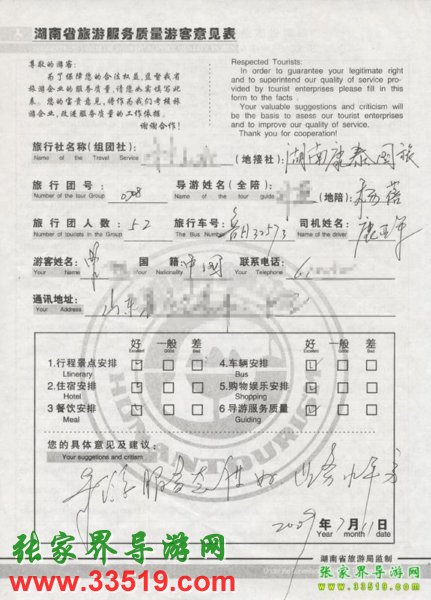 湖南省旅游服务质量游客意见表
尊敬的游客:
为了保障您的合法权益,监督我省
旅游企业的服务质量,请您如实填写此
表。您的宝贵意见,将作为我们考核旅
游企业,改进服务质量的工作依据。
谢谢合作!
Respected Tourists:
In order to guarantee your legitimate right
and to superintend our quality of service pro-
vided by tourist enterprises please fill in this
form to the facts .
Your valuable suggestions and criticism will
be the basis to assure our tourist enterprises
and to improve our quality of service.
Thank you for cooperation!
旅行社名称(组团社): (地接社): 湖南康泰国旅
Name of the Travel Service
旅行团号: 0708 导游姓名(全陪) (地陪) 杨蓉
Number of the tour Group Name of the tour guide
旅行团人数: 52 旅行车号: 鲁H30573 司机姓名:
Number of tourists in the Group The Bus Number Name of the driver
游客姓名: 国籍 中国 联系电话:
Your Name Your Nationality Your Telephone
通讯地址: 山东
Your Address
好 一般 差 好 一般 差
Excellent Good Bad Excellent Good Bad
1.行程景点安排 4.车辆安排
Ltinerary Bus
2.住宿安排 5.购物娱乐安排
Hotel Shopping
3 餐饮安排 6 导游服务质量
Meal Guiding
HUNAN TOURISM
您的具体意见及建议:
Your suggestions and critism
2009 年 7 月 11 日
Year month date
湖南省旅游局监制
张家界导游网
www.33519.com
张家界导游网
www.33519.com